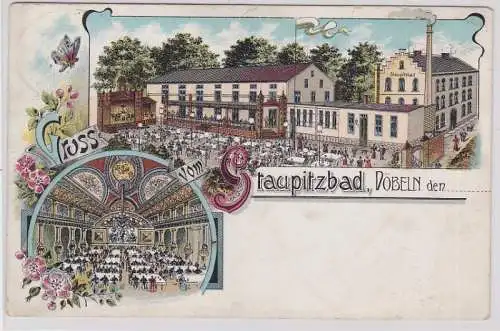 Staupitzbad
Gruss vom Staupitzbad, Döbeln den